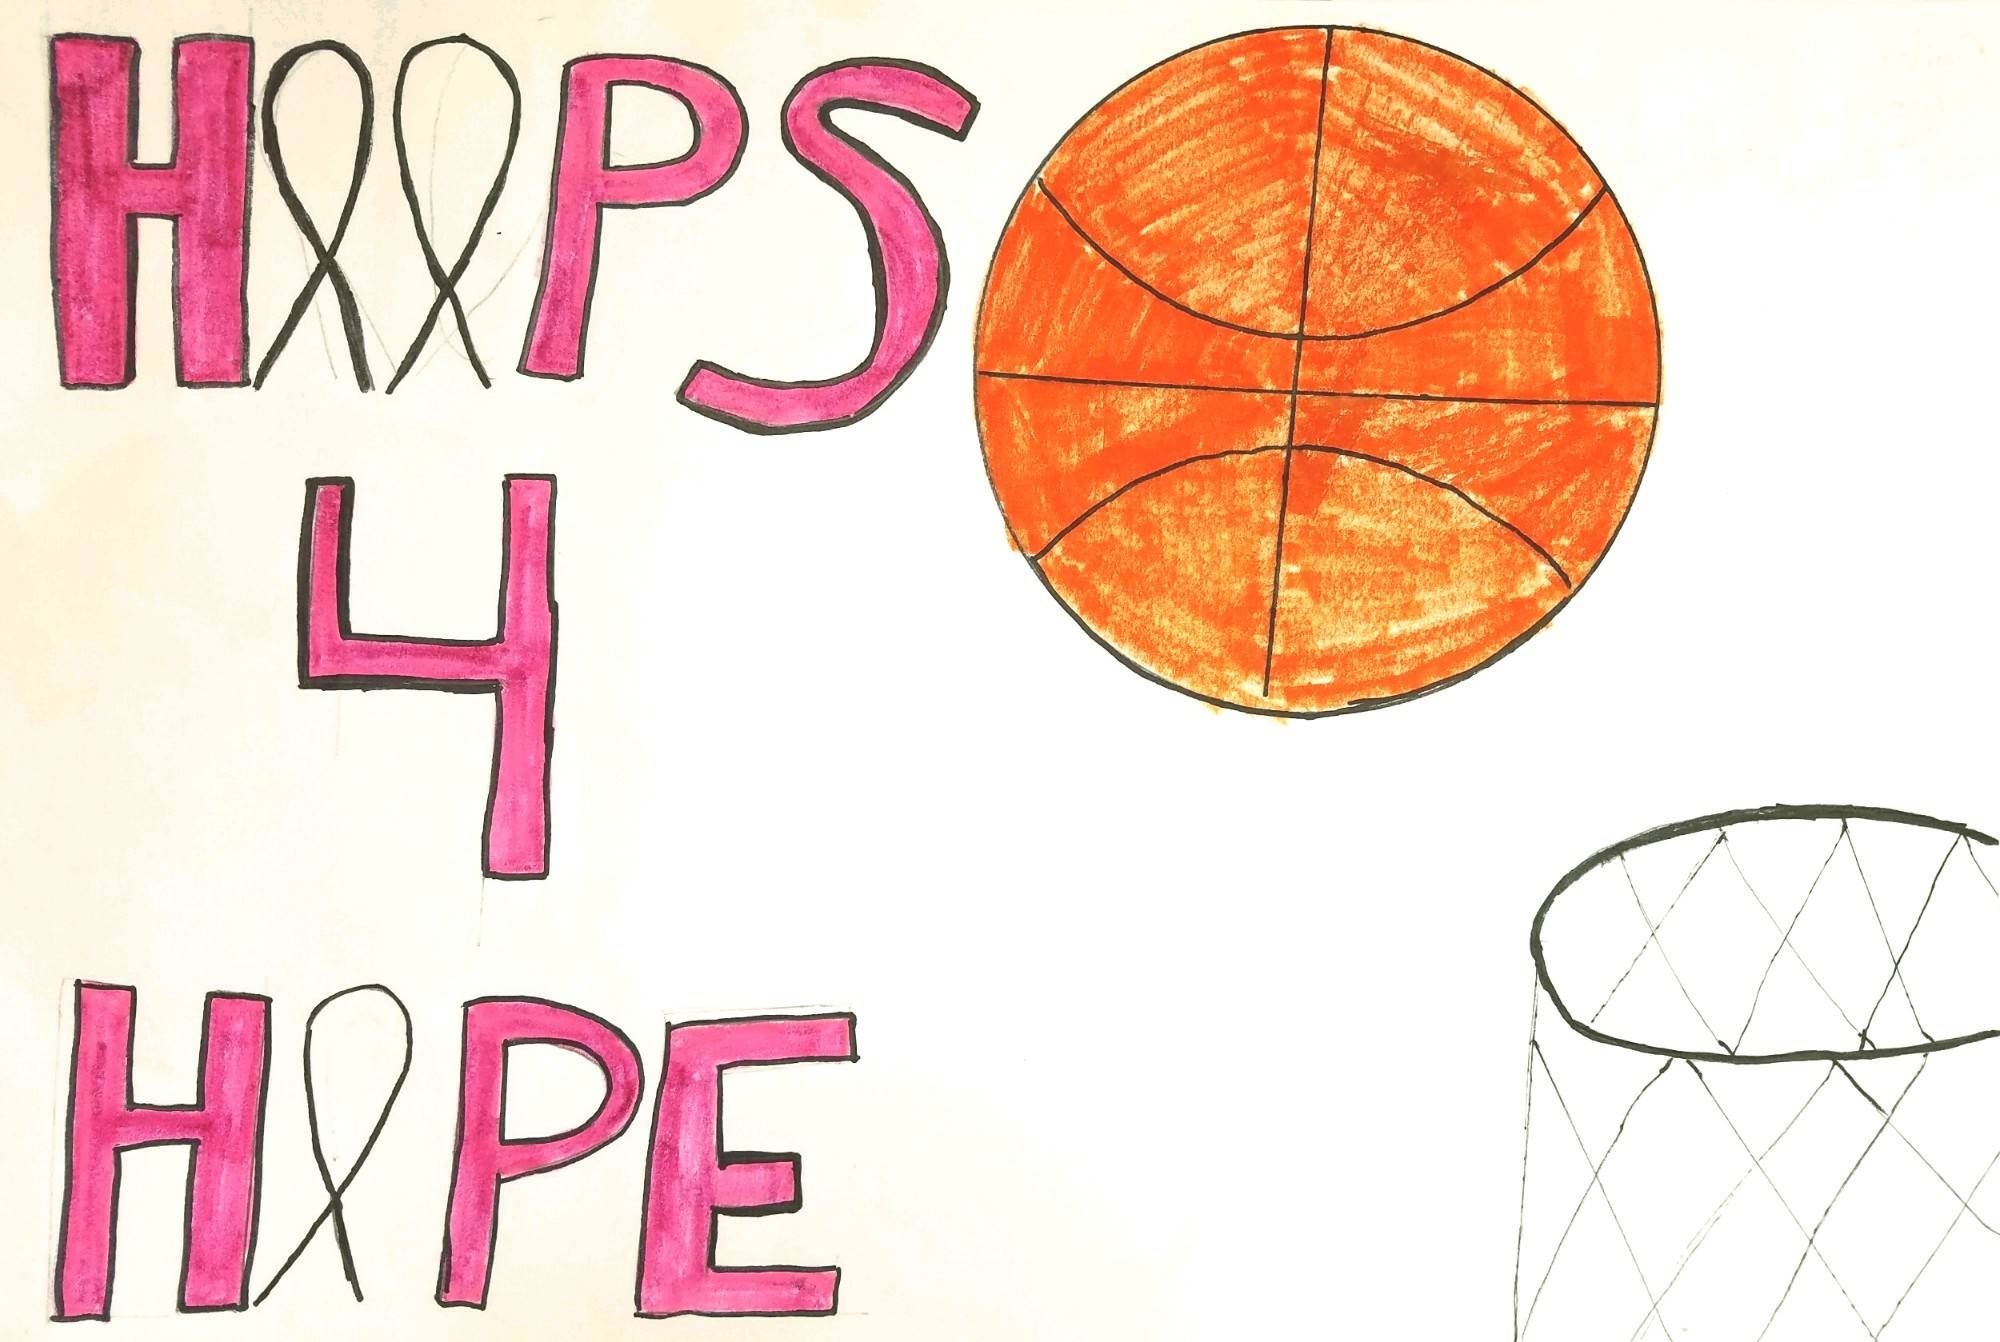 HOOPS
4
HOPE